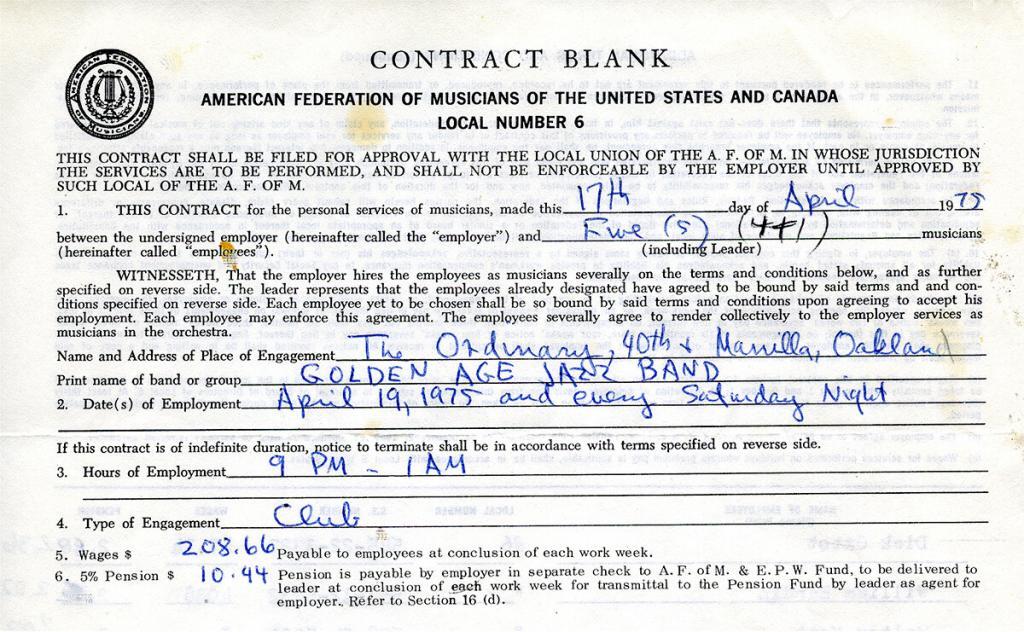 CONTRACT BLANK
AMERICAN FEDERATION OF MUSICIANS OF THE UNITED STATES AND CANADA
LOCAL NUMBER 6
AMERICAN FEDERATION OF MUSICIANS
THIS CONTRACT SHALL BE FILED FOR APPROVAL WITH THE LOCAL UNION OF THE A. F. OF M. IN WHOSE JURISDICTION
THE SERVICES ARE TO BE PERFORMED, AND SHALL NOT BE ENFORCEABLE BY THE EMPLOYER UNTIL APPROVED BY
SUCH LOCAL OF THE A. F. OF M.
1. THIS CONTRACT for the personal services of musicians, made this 17th day of April 1975
between the undersigned employer (hereinafter called the "employer") and Five (5) (4+1) musicians
(hereinafter called "employees"). (including Leader)
WITNESSETH, That the employer hires the employees as musicians severally on the terms and conditions below, and as further
specified on reverse side. The leader represents that the employees already designated have agreed to be bound by said terms and and con-
ditions specified on reverse side. Each employee yet to be chosen shall be so bound by said terms and conditions upon agreeing to accept his
employment. Each employee may enforce this agreement. The employees severally agree to render collectively to the employer services as
musicians in the orchestra.
Name and Address of Place of Engagement The Ordinary, 40th & Manilla, Oakland
Print name of band or group GOLDEN AGE JAZZ BAND
2. Date(s) of Employment April 19, 1975 and every Saturday Night
If this contract is of indefinite duration, notice to terminate shall be in accordance with terms specified on reverse side.
3. Hours of Employment 9 PM - 1 AM
4. Type of Engagement Club
5. Wages $ 208.66 Payable to employees at conclusion of each work week.
6. 5% Pension $ 10.44 Pension is payable by employer in separate check to A. F. of M. & E. P. W. Fund, to be delivered to
leader at conclusion of each work week for transmittal to the Pension Fund by leader as agent for
employer. Refer to Section 16 (d).